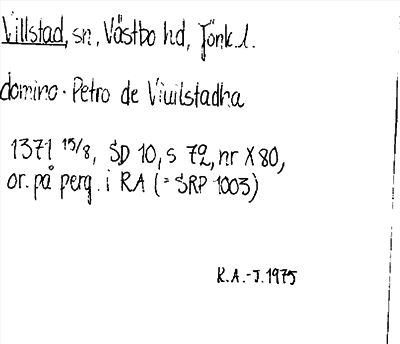 Villstad, sn, Västbo hd, Jönk.l.
domino. Petro de Viuilstadha
1371 15/8, SD 10, s 72, nr X80,
or. på perg. i RA (= SRP 1003)
K.A.-J. 1975